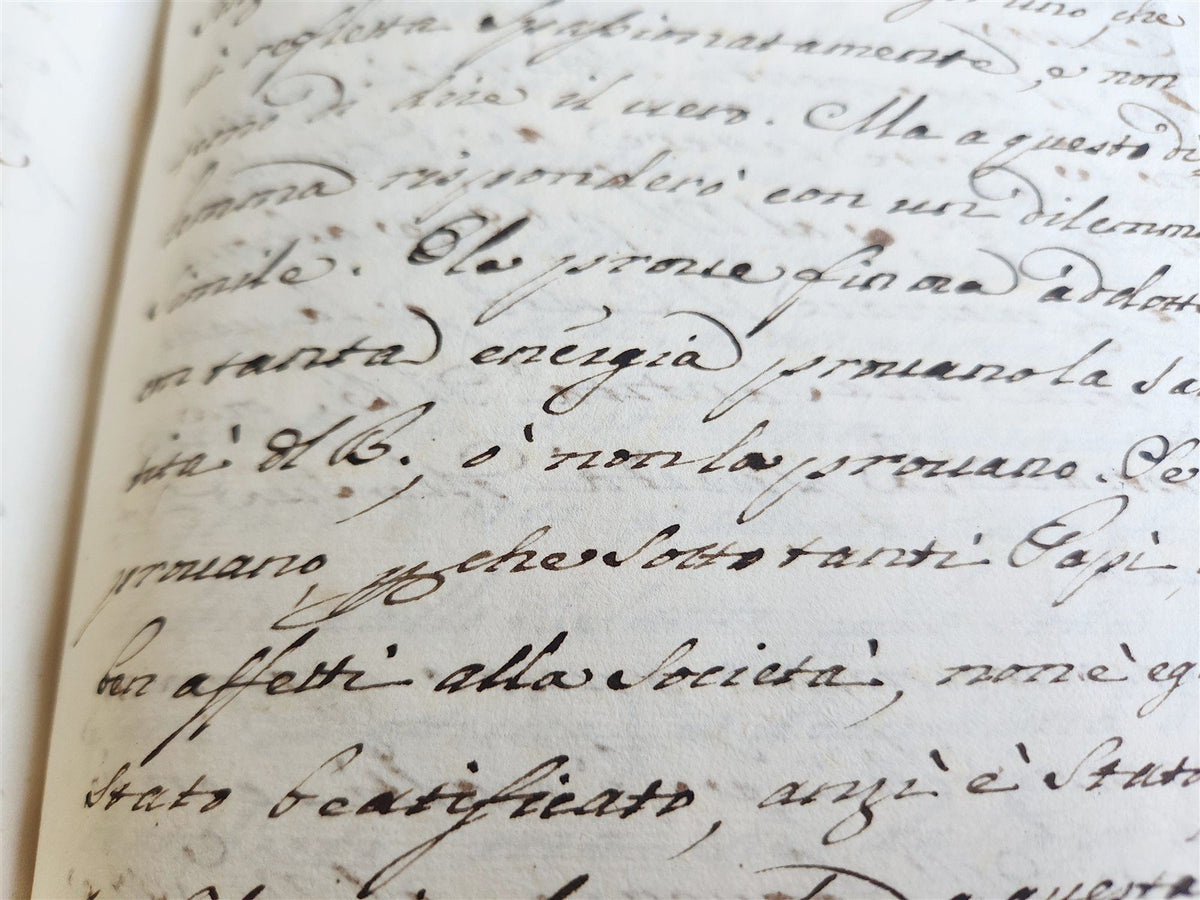 uno, che
rifletta spassionatamente, e non
di dire il vero. Ma a questo di
lemma risponderò con un dilemma
simile. O le proue finora addott
con tanta energia prouano la san
tità del B., ò non la prouano. Se
prouano, che sotto tanti Papi,
ben affetti alla Società, non è eg
stato beatificato, anzi è stato
a questa